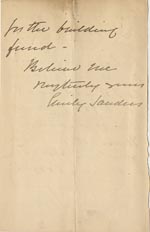 for the building
fund -
Believe me
yours
Emily Sanders